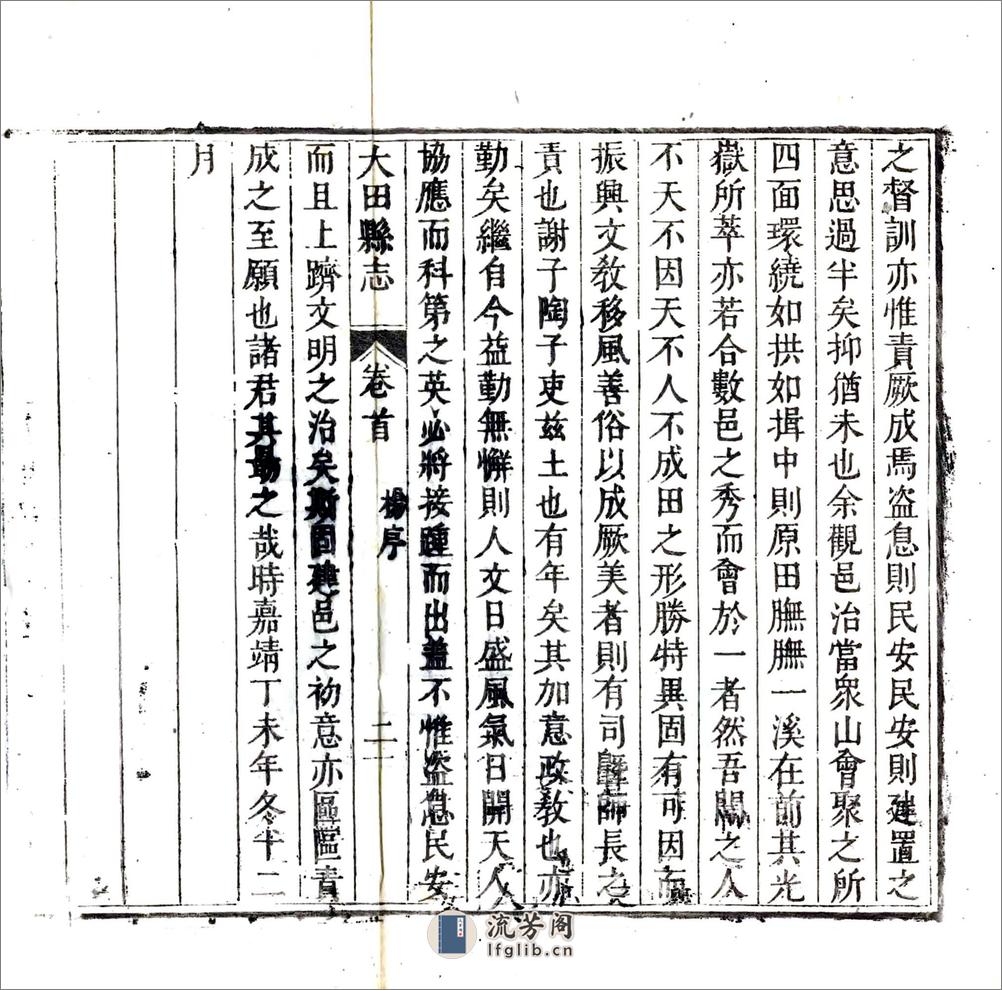 之督訓亦惟責厥成焉盗息則民安民安則建置之
意思過半矣抑猶未也余觀邑治當衆山會聚之所
四面環繞如拱如揖中則原田膴膴一溪在前其光
嶽所萃亦若合數邑之秀而會於一者然吾聞之人
不天不因天不人不成田之形勝特異固有可因而
振興文敎移風善俗以成厥美者則有司曁師長之
責也謝子陶子吏兹土也有年矣其加意政敎也亦
勤矣繼自今益勤無懈則人文日盛風氣日開天人
協應而科第之英必將接踵而出盖不惟盜息民安
大田縣志 卷首 楊序 二
而且上躋文明之治矣斯固建邑之初意亦區區責
成之至願也諸君其勗之哉時嘉靖丁未年冬十二
月
流芳阁
lfglib.cn